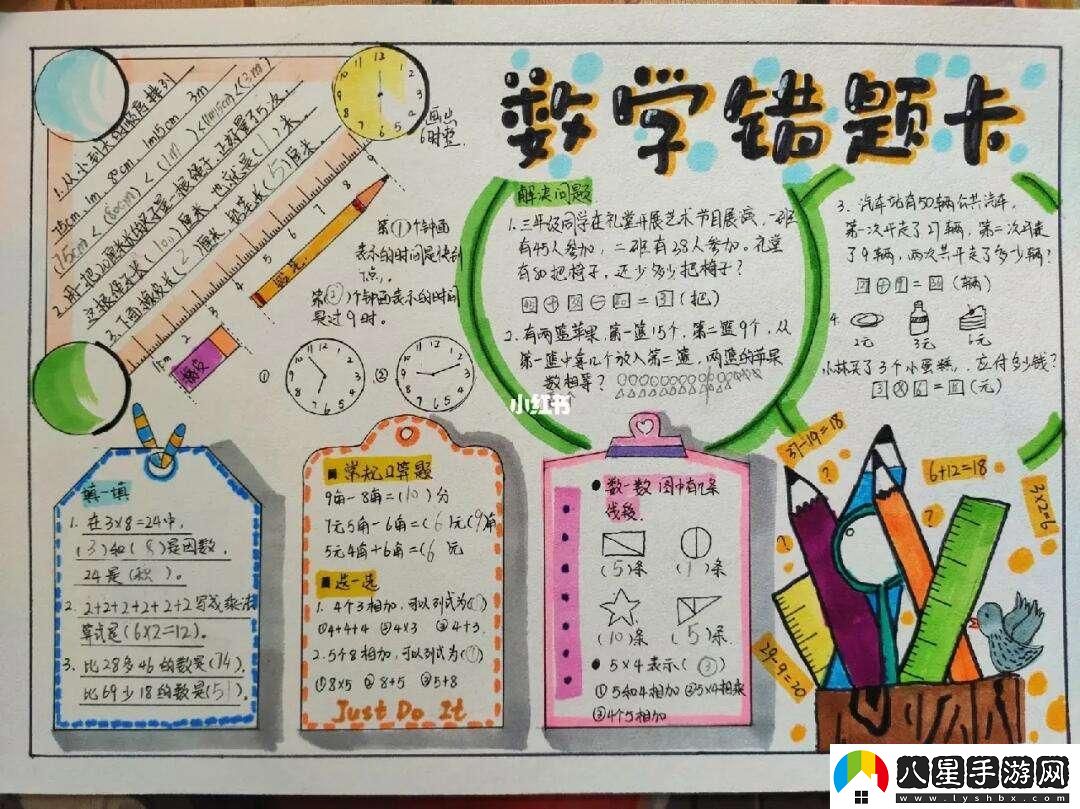 数学错题卡
1.从小到大的顺序排列
75cm、1m、80cm、1m15cm、3m
(75cm)<(80cm)<(1m)<(1m15cm)<(3m)
这根绳子长(100)厘米,也就是(1)米。
3.下面橡皮长(2)厘米,铅笔长(5)厘米。
画出
6时整.
铅笔
橡皮
1cm 2 3 4 5 6 7 8 9
第①个钟面
表示的时间是快到
7点,
第②个钟面表示的时间
是过9时.
① ②
解决问题
1.三年级同学在礼堂开展艺术节目展演,一班
有45人参加,二班有28人参加。礼堂
有80把椅子,还少多少把椅子?
(把)
2.有两篮苹果,第一篮15个,第二篮9个,从
第一篮中拿几个放入第二篮,两篮的苹果
数相等?
3.汽车站有50辆公共汽车,
第一次开走了27辆,第二次开走
了9辆,两次共开走了多少辆?
(辆)
4.
2元 3元 6元
小林买了3个小蛋糕,应付多少钱?
(元)
小红书
填一填
1.在3×8=24中,
(3)和(8)是因数,
24是(积)。
2.2+2+2+2+2+2写成乘法
算式是(6×2=12)。
3.比28多46的数是(74),
比69少18的数是(51).
■常规口算题
9角-8角=(10)分
7元5角-6角=(6)元(9)角
5元4角+6角=(6)元
■选一选
1.4个3相加,可以列式为(①)
①4+4+4 ②4×3 ③4+3
2.5个8相加,可以列式为(①)
①8×5 ②8+5 ③5+8
Just Do It
●数一数 图中有几条
线段.
(5)条 (1)条
(10)条 (5)条
●5×4表示(③)
①5和4相加②5×4相乘
③4个5相加
37-19=18
6+12=18
3×2=6
29-9=20
? ? ?
八星手游网
www.lyshbx.com